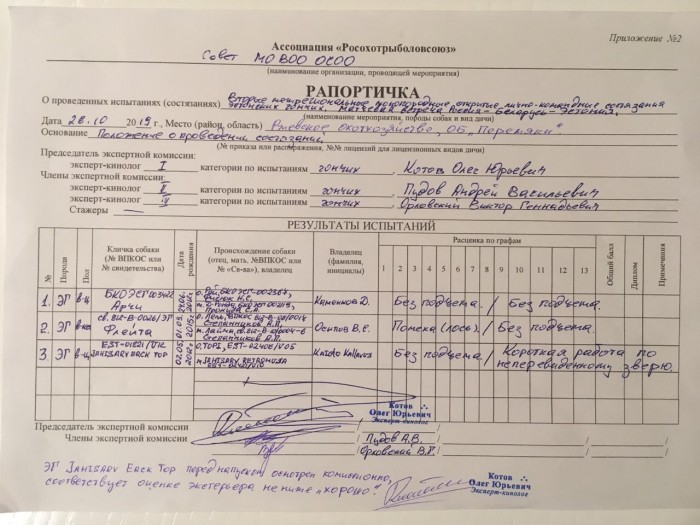 Приложение №2
Ассоциация «Росохотрыболовсоюз»
Совет МОВОО ОСОО
(наименование организации, проводящей мероприятия)
РАПОРТИЧКА
О проведенных испытаниях (состязаниях) Второе межрегиональное монопородные открытие лично-командные состязания
эстонских гончих, матчевая встреча Россия-Беларусь-Эстония,
(наименование мероприятия, породы собак и вид дичи)
Дата 26.10 2019 г., Место (район, область) Ржевское охотхозяйство, ОБ „Перемяки"
Основание Положение о проведении состязаний,
(№ приказа или распоряжения, №№ лицензий для лицензионных видов дичи)
Председатель экспертной комиссии:
эксперт-кинолог I категории по испытаниям гончих, Котов Олег Юрьевич
Члены экспертной комиссии:
эксперт-кинолог II категории по испытаниям гончих, Пудов Андрей Васильевич
эксперт-кинолог III категории по испытаниям гончих, Орловский Виктор Геннадьевич
Стажеры —
РЕЗУЛЬТАТЫ ИСПЫТАНИЙ
№ Порода Пол Кличка собаки (№ ВПКОС или № свидетельства) Дата рождения Происхождение собаки (отец, мать, №ВПКОС или № «Св-ва»), владелец Владелец (фамилия, инициалы) Расценка по графам Общий балл Диплом Примечания
1 2 3 4 5 6 7 8 9 10 11 12 13
1. ЭГ в-ц Арчи Каменков Д. Без подъема. / Без подъема.
2. ЭГ Флейта Осипов В.Е. Помеха (лось). / Без подъема.
3 ЭГ в-ц JAHISARV ERCK TOP 02.05. JAHISARV Без подъема / Короткая работа по
неперевиденному зверю.
Председатель экспертной комиссии Котов Олег Юрьевич Эксперт-кинолог
Члены экспертной комиссии / Пудов А.В. /
/ Орловский В.Г. /
ЭГ JAHISARV ERCK TOP перед напуском осмотрен комиссионно,
соответствует оценке экстерьера не ниже „хорошо".
Котов
Олег Юрьевич
Эксперт-кинолог